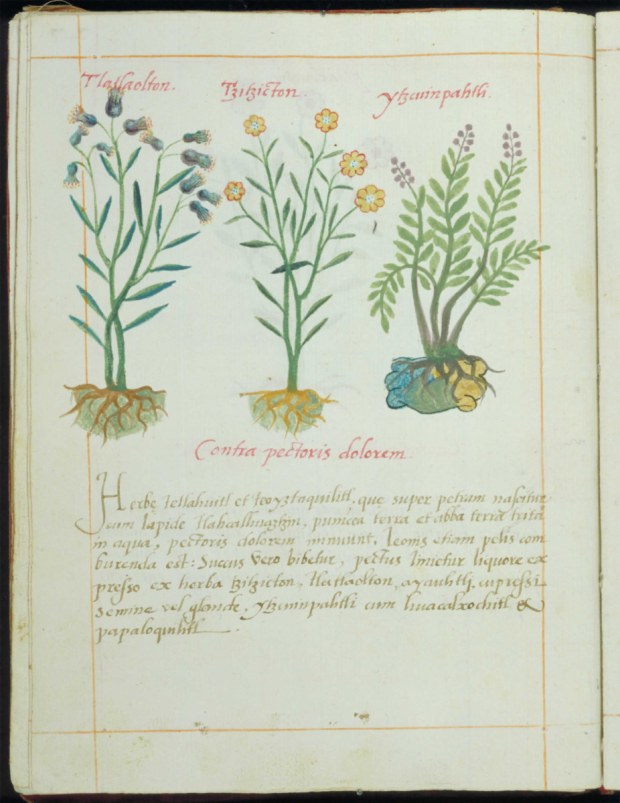 Tlatlaolton. Tzitzicton. Ytzcuinpahtli.
Contra pectoris dolorem.
Herbę tetlahuitl et teoyztaquilitl, que super petram nascitur
cum lapide tlahcalhuatzin, punicea terra et alba terra trita
in aqua, pectoris dolorem minuunt, leonis etiam pelis com
burenda est: Succus vero bibetur, pectus linietur liquore ex
presso ex herba tzitzicton, tlatlaolton, ayauhtli, cupressi
semine vel glande, ytzcuinpahtli cum huacalxochitl &
papaloquilitl.